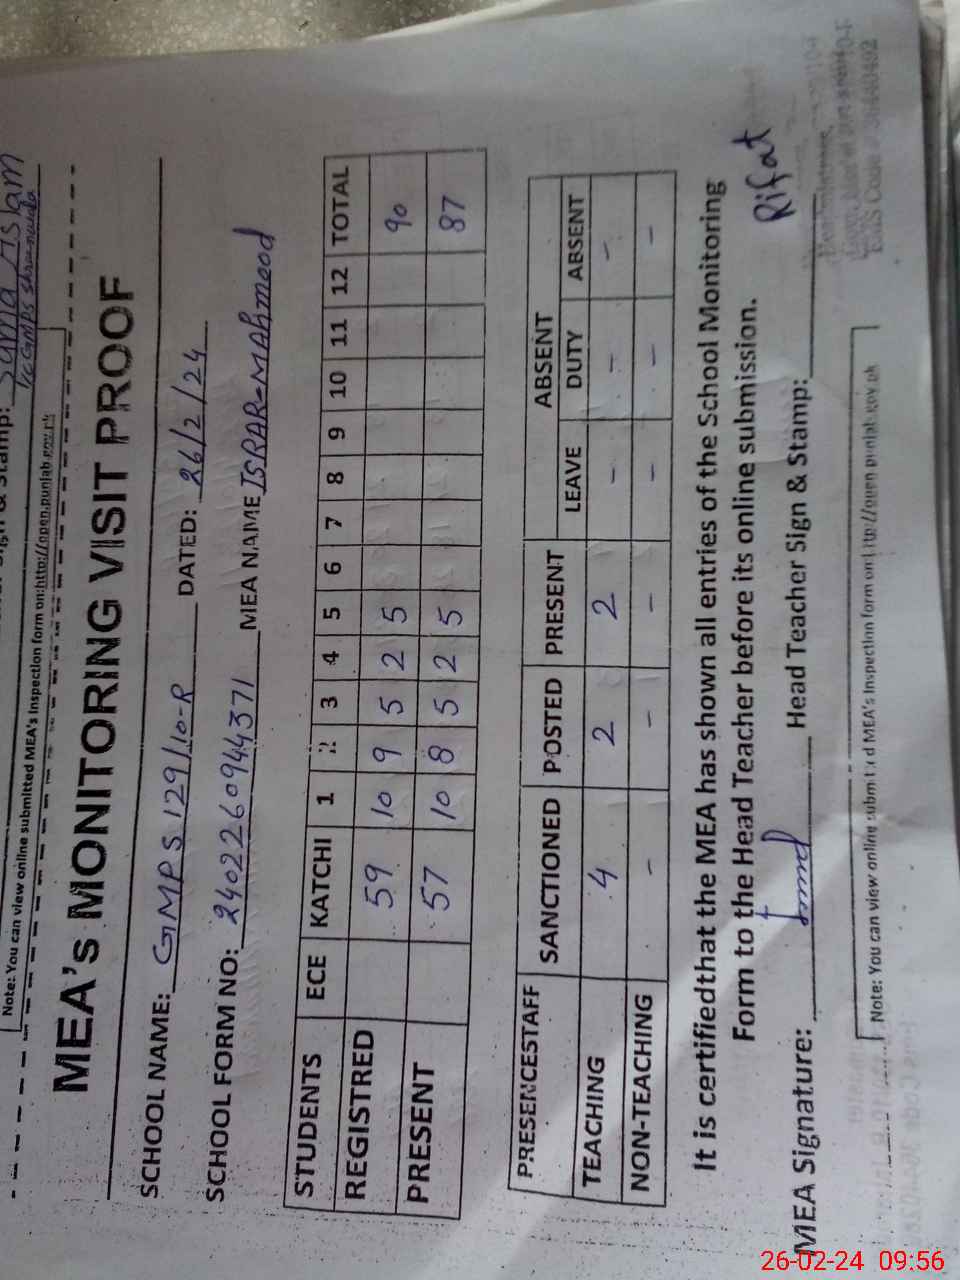 Note: You can view online submitted MEA's Inspection form on:http://open.punjab.gov.pk
MEA's MONITORING VISIT PROOF
SCHOOL NAME: GMPS 129/10-R DATED: 26/2/24
SCHOOL FORM NO: 2402260944371 MEA NAME ISRAR-MAhmood
STUDENTS ECE KATCHI 1 2 3 4 5 6 7 8 9 10 11 12 TOTAL
REGISTRED 59 10 9 5 2 5 90
PRESENT 57 10 8 5 2 5 87
PRESENCESTAFF SANCTIONED POSTED PRESENT ABSENT
LEAVE DUTY ABSENT
TEACHING 4 2 2 - - -
NON-TEACHING - - - - - -
It is certifiedthat the MEA has shown all entries of the School Monitoring
Form to the Head Teacher before its online submission.
MEA Signature: Head Teacher Sign & Stamp: Rifat
Note: You can view online submitted MEA's Inspection form on http://open.punjab.gov.pk
26-02-24 09:56